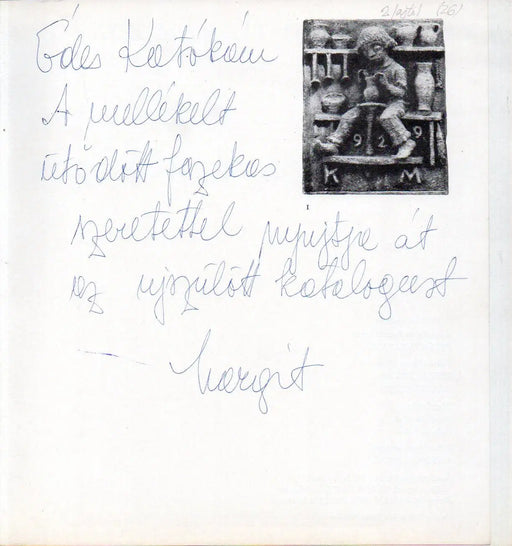 2 lajtel (26)
Édes Katókám
A mellékelt
ütődött fazekas
szeretettel nyujtja át
az ujszülött katalogust
Margit
1929
K M
1.